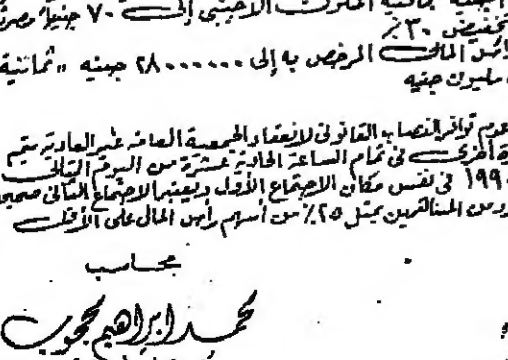 الأجنبى إلى ٧٠ جنيها
تخفيض ٣٠٪
المالى المرخص به إلى ٢٨٠٠٠٠٠٠ جنيه " ثمانية
مليون جنيه
عدم توافر النصاب القانونى لانعقاد الجمعية العامة غير العادية يتم
أخرى فى تمام الساعة الحادية عشرة من اليوم التالى
١٩٩ فى نفس مكان الاجتماع الأول ويعتبر الاجتماع الثانى صحيح
من المساهمين يمثل ٢٥٪ من أسهم رأس المال على الأقل
محاسب
محمد ابراهيم محجوب